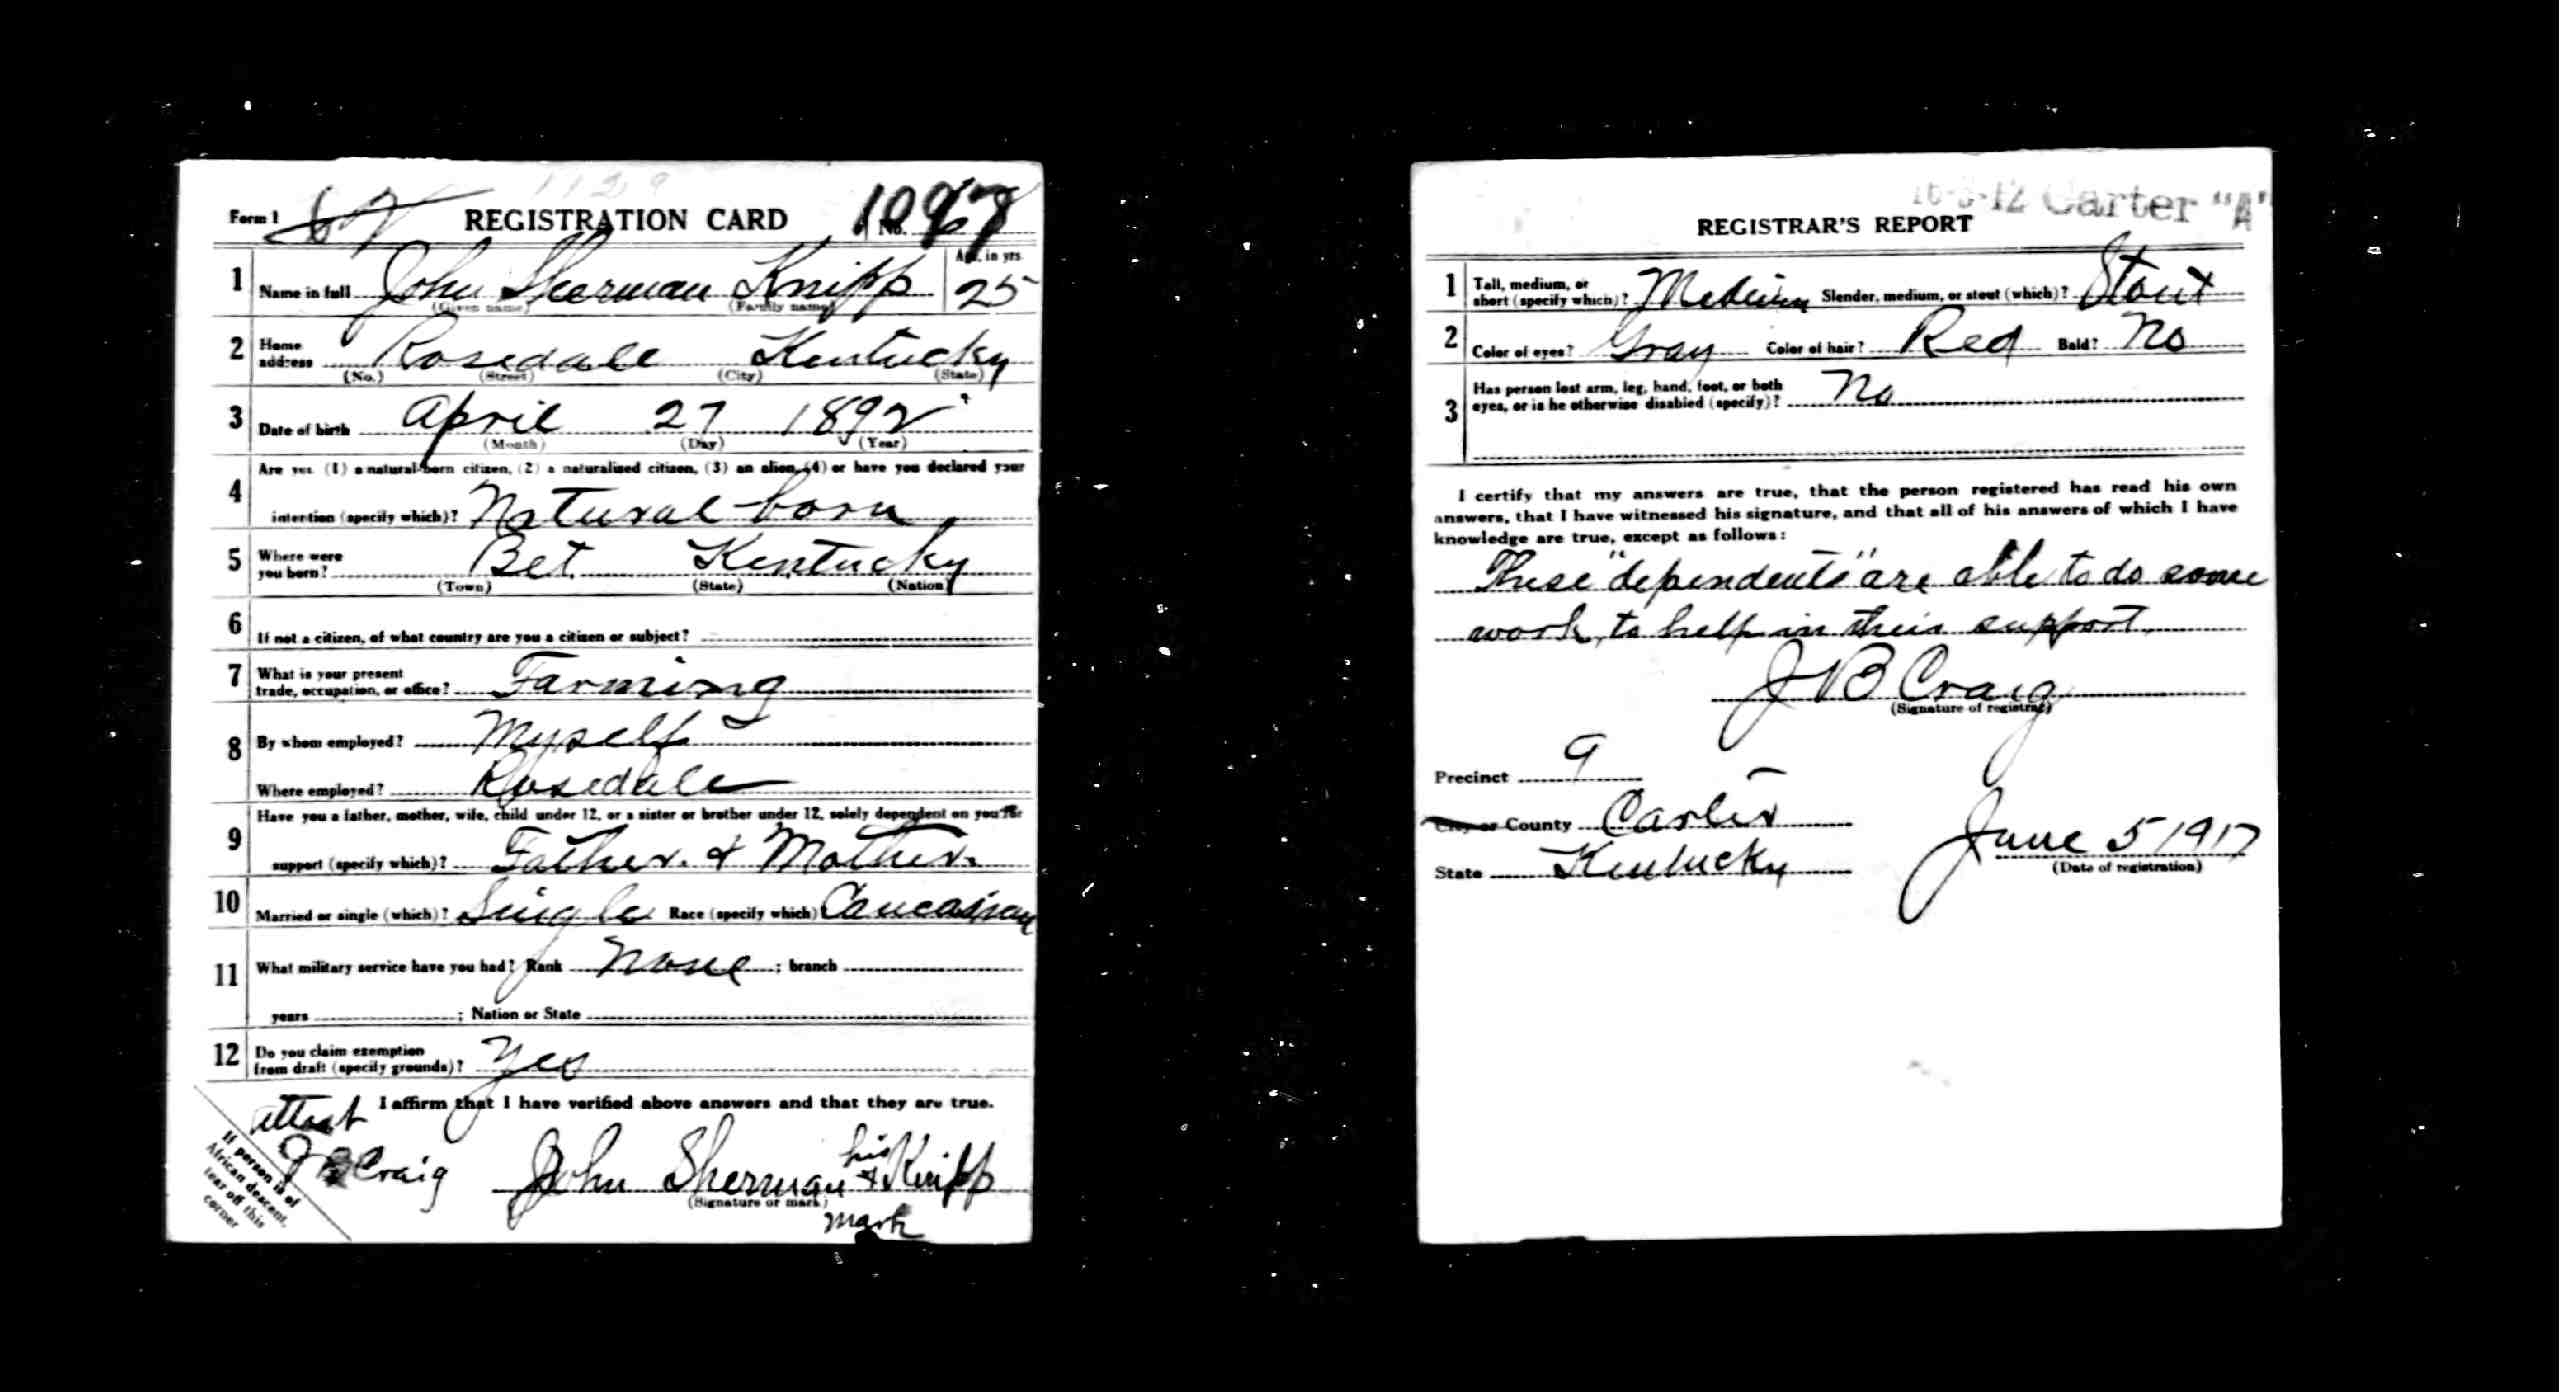 1129
Form 1 REGISTRATION CARD No.
1 Name in full John Sherman Knipp Age, in yrs. 25
(Given name) (Family name)
2 Home address Rosedale Kentucky
(No.) (Street) (City) (State)
3 Date of birth April 27 1892
(Month) (Day) (Year)
4 Are you (1) a natural-born citizen, (2) a naturalized citizen, (3) an alien, (4) or have you declared your
intention (specify which)? Natural-born
5 Where were you born? Bet Kentucky
(Town) (State) (Nation)
6 If not a citizen, of what country are you a citizen or subject?
7 What is your present trade, occupation, or office? Farming
8 By whom employed? Myself
Where employed? Rosedale
9 Have you a father, mother, wife, child under 12, or a sister or brother under 12, solely dependent on you for
support (specify which)? Father & Mother.
10 Married or single (which)? Single Race (specify which) Caucasian
11 What military service have you had? Rank None ; branch
years ; Nation or State
12 Do you claim exemption from draft (specify grounds)? Yes
I affirm that I have verified above answers and that they are true.
attest
J B Craig
his
John Sherman x Knipp
(Signature or mark)
mark
If person is of
African descent,
tear off this
corner
Carter "A"
REGISTRAR'S REPORT
1 Tall, medium, or short (specify which)? Medium Slender, medium, or stout (which)? Stout
2 Color of eyes? Gray Color of hair? Red Bald? No
3 Has person lost arm, leg, hand, foot, or both
eyes, or is he otherwise disabled (specify)? No
I certify that my answers are true, that the person registered has read his own
answers, that I have witnessed his signature, and that all of his answers of which I have
knowledge are true, except as follows:
These "dependents" are able to do some
work, to help in their support
J B Craig
(Signature of registrar)
Precinct 9
City or County Carter
State Kentucky
June 5 1917
(Date of registration)